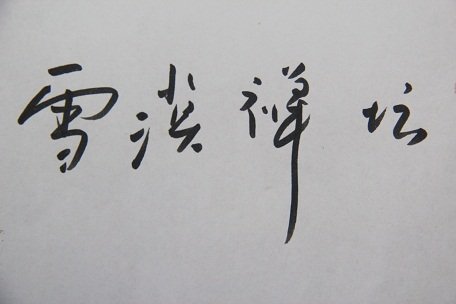 雪漠禅坛